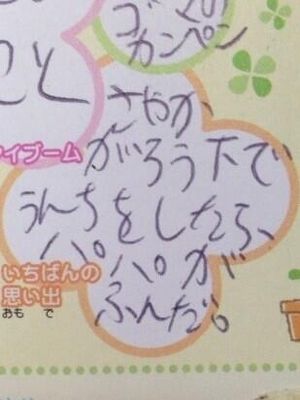 カンペン
こと
イブーム
さやか
がろう下で
うんちをしたら、
パパが
ふんだ。
いちばんの
思い出
おも で